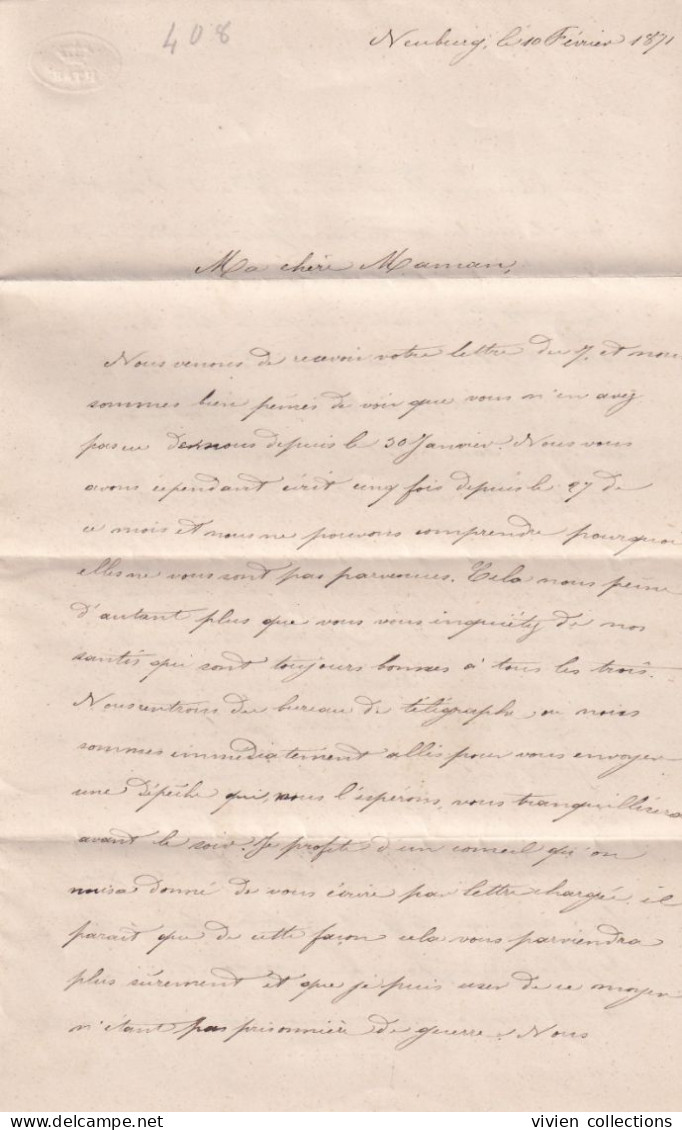 408
Neuburg, le 10 Février 1871
Ma chère Maman,
Nous venons de recevoir votre lettre du 7. et nous
sommes bien peinés de voir que vous n'en avez
pas eu de nous depuis le 30 Janvier. Nous vous
avons cependant écrit cinq fois depuis le 27 de
ce mois et nous ne pouvons comprendre pourquoi
elles ne vous sont pas parvenues. Cela nous peine
d'autant plus que vous vous inquiétez de nos
santés qui sont toujours bonnes à tous les trois.
Nous rentrons du bureau de télégraphe, où nous
sommes immédiatement allés pour vous envoyer
une dépêche qui, nous l'espérons, vous tranquillisera
avant le soir. Je profite d'un conseil qu'on
nous a donné de vous écrire par lettre chargée, il
parait que de cette façon cela vous parviendra
plus sûrement et que je puis user de ce moyen
n'étant pas prisonnière de guerre. Nous
delcampe.net
vivien collections